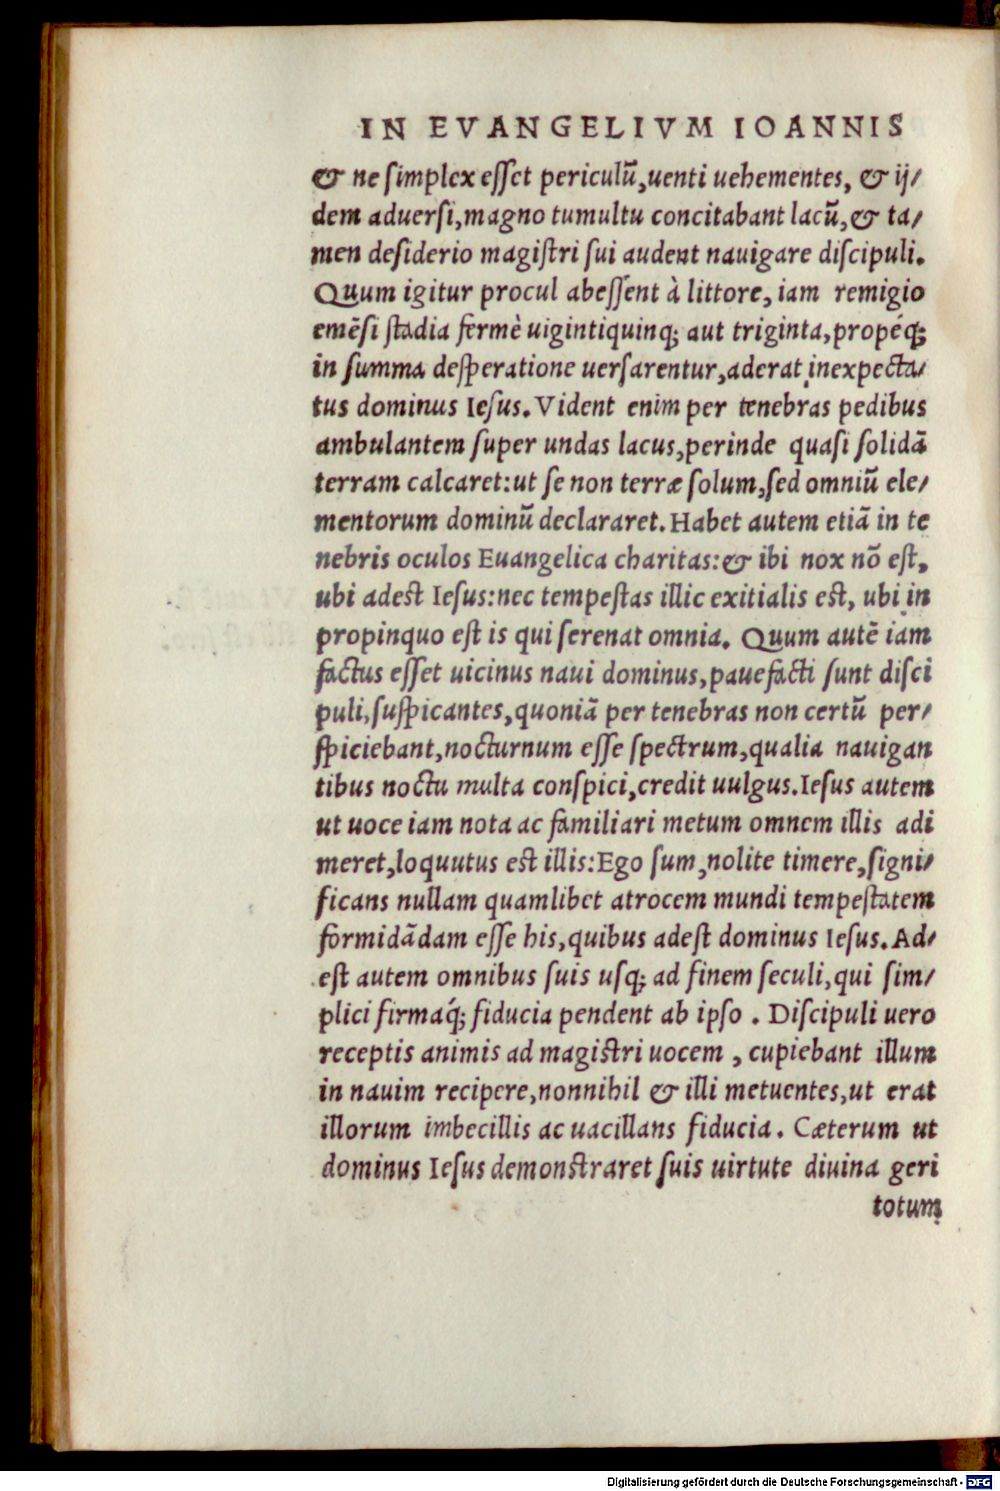 IN EVANGELIVM IOANNIS
& ne simplex esset periculū,uenti uehementes, & ij/
dem aduersi,magno tumultu concitabant lacū,& ta/
men desiderio magistri sui audent nauigare discipuli.
Quum igitur procul abessent à littore, iam remigio
emēsi stadia fermè uigintiquinq; aut triginta,propéq;
in summa desperatione uersarentur,aderat inexpecta/
tus dominus Iesus. Vident enim per tenebras pedibus
ambulantem super undas lacus,perinde quasi solidā
terram calcaret:ut se non terræ solum,sed omniū ele/
mentorum dominū declararet. Habet autem etiā in te
nebris oculos Euangelica charitas:& ibi nox nō est,
ubi adest Iesus:nec tempestas illic exitialis est, ubi in
propinquo est is qui serenat omnia. Quum autē iam
factus esset uicinus naui dominus,pauefacti sunt disci
puli,suspicantes,quoniā per tenebras non certū per/
spiciebant,nocturnum esse spectrum,qualia nauigan
tibus noctu multa conspici,credit uulgus.Iesus autem
ut uoce iam nota ac familiari metum omnem illis adi
meret,loquutus est illis:Ego sum,nolite timere,signi/
ficans nullam quamlibet atrocem mundi tempestatem
formidādam esse his,quibus adest dominus Iesus. Ad/
est autem omnibus suis usq; ad finem seculi,qui sim/
plici firmaq́; fiducia pendent ab ipso . Discipuli uero
receptis animis ad magistri uocem , cupiebant illum
in nauim recipere,nonnihil & illi metuentes,ut erat
illorum imbecillis ac uacillans fiducia. Cæterum ut
dominus Iesus demonstraret suis uirtute diuina geri
totum
Digitalisierung gefördert durch die Deutsche Forschungsgemeinschaft - DFG